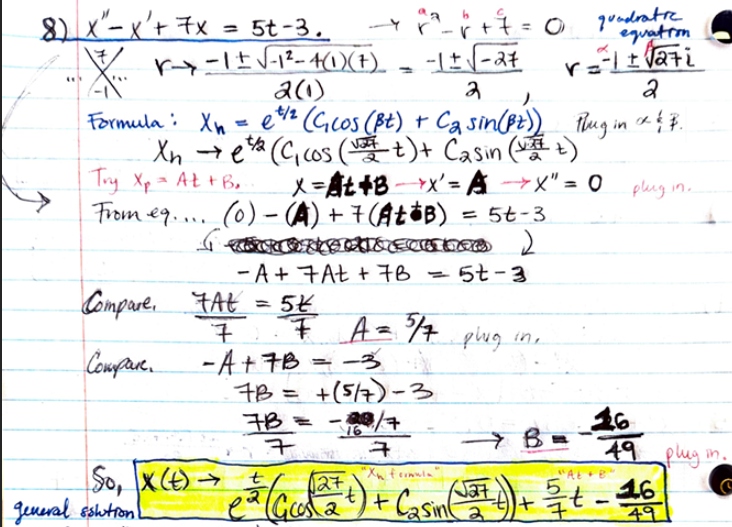 8) x'' - x' + 7x = 5t - 3. → r² - r + 7 = 0 quadratic equation
a b c
7 -1 r → -1 ± √-1² - 4(1)(7) / 2(1) = -1 ± √-27 / 2 , r = -1 ± √27 i / 2
Formula: Xh = e^(t/2) (C₁cos(βt) + C₂sin(βt)) Plug in α & β.
Xh → e^(t/2) (C₁cos(√27/2 t) + C₂sin(√27/2 t)
Try Xp = At + B. X = At + B → x' = A → x'' = 0 plug in.
From eq. ... (0) - (A) + 7(At + B) = 5t - 3
-A + 7At + 7B = 5t - 3
Compare. 7At/7 = 5t/7 A = 5/7 plug in.
Compare. -A + 7B = -3
7B = +(5/7) - 3
7B/7 = -16/7 / 7 → B = -16/49 plug in.
So, general solution x(t) → e^(t/2) (C₁cos(√27/2 t) + C₂sin(√27/2 t)) + 5/7 t - 16/49
"Xh formula" "At + B"